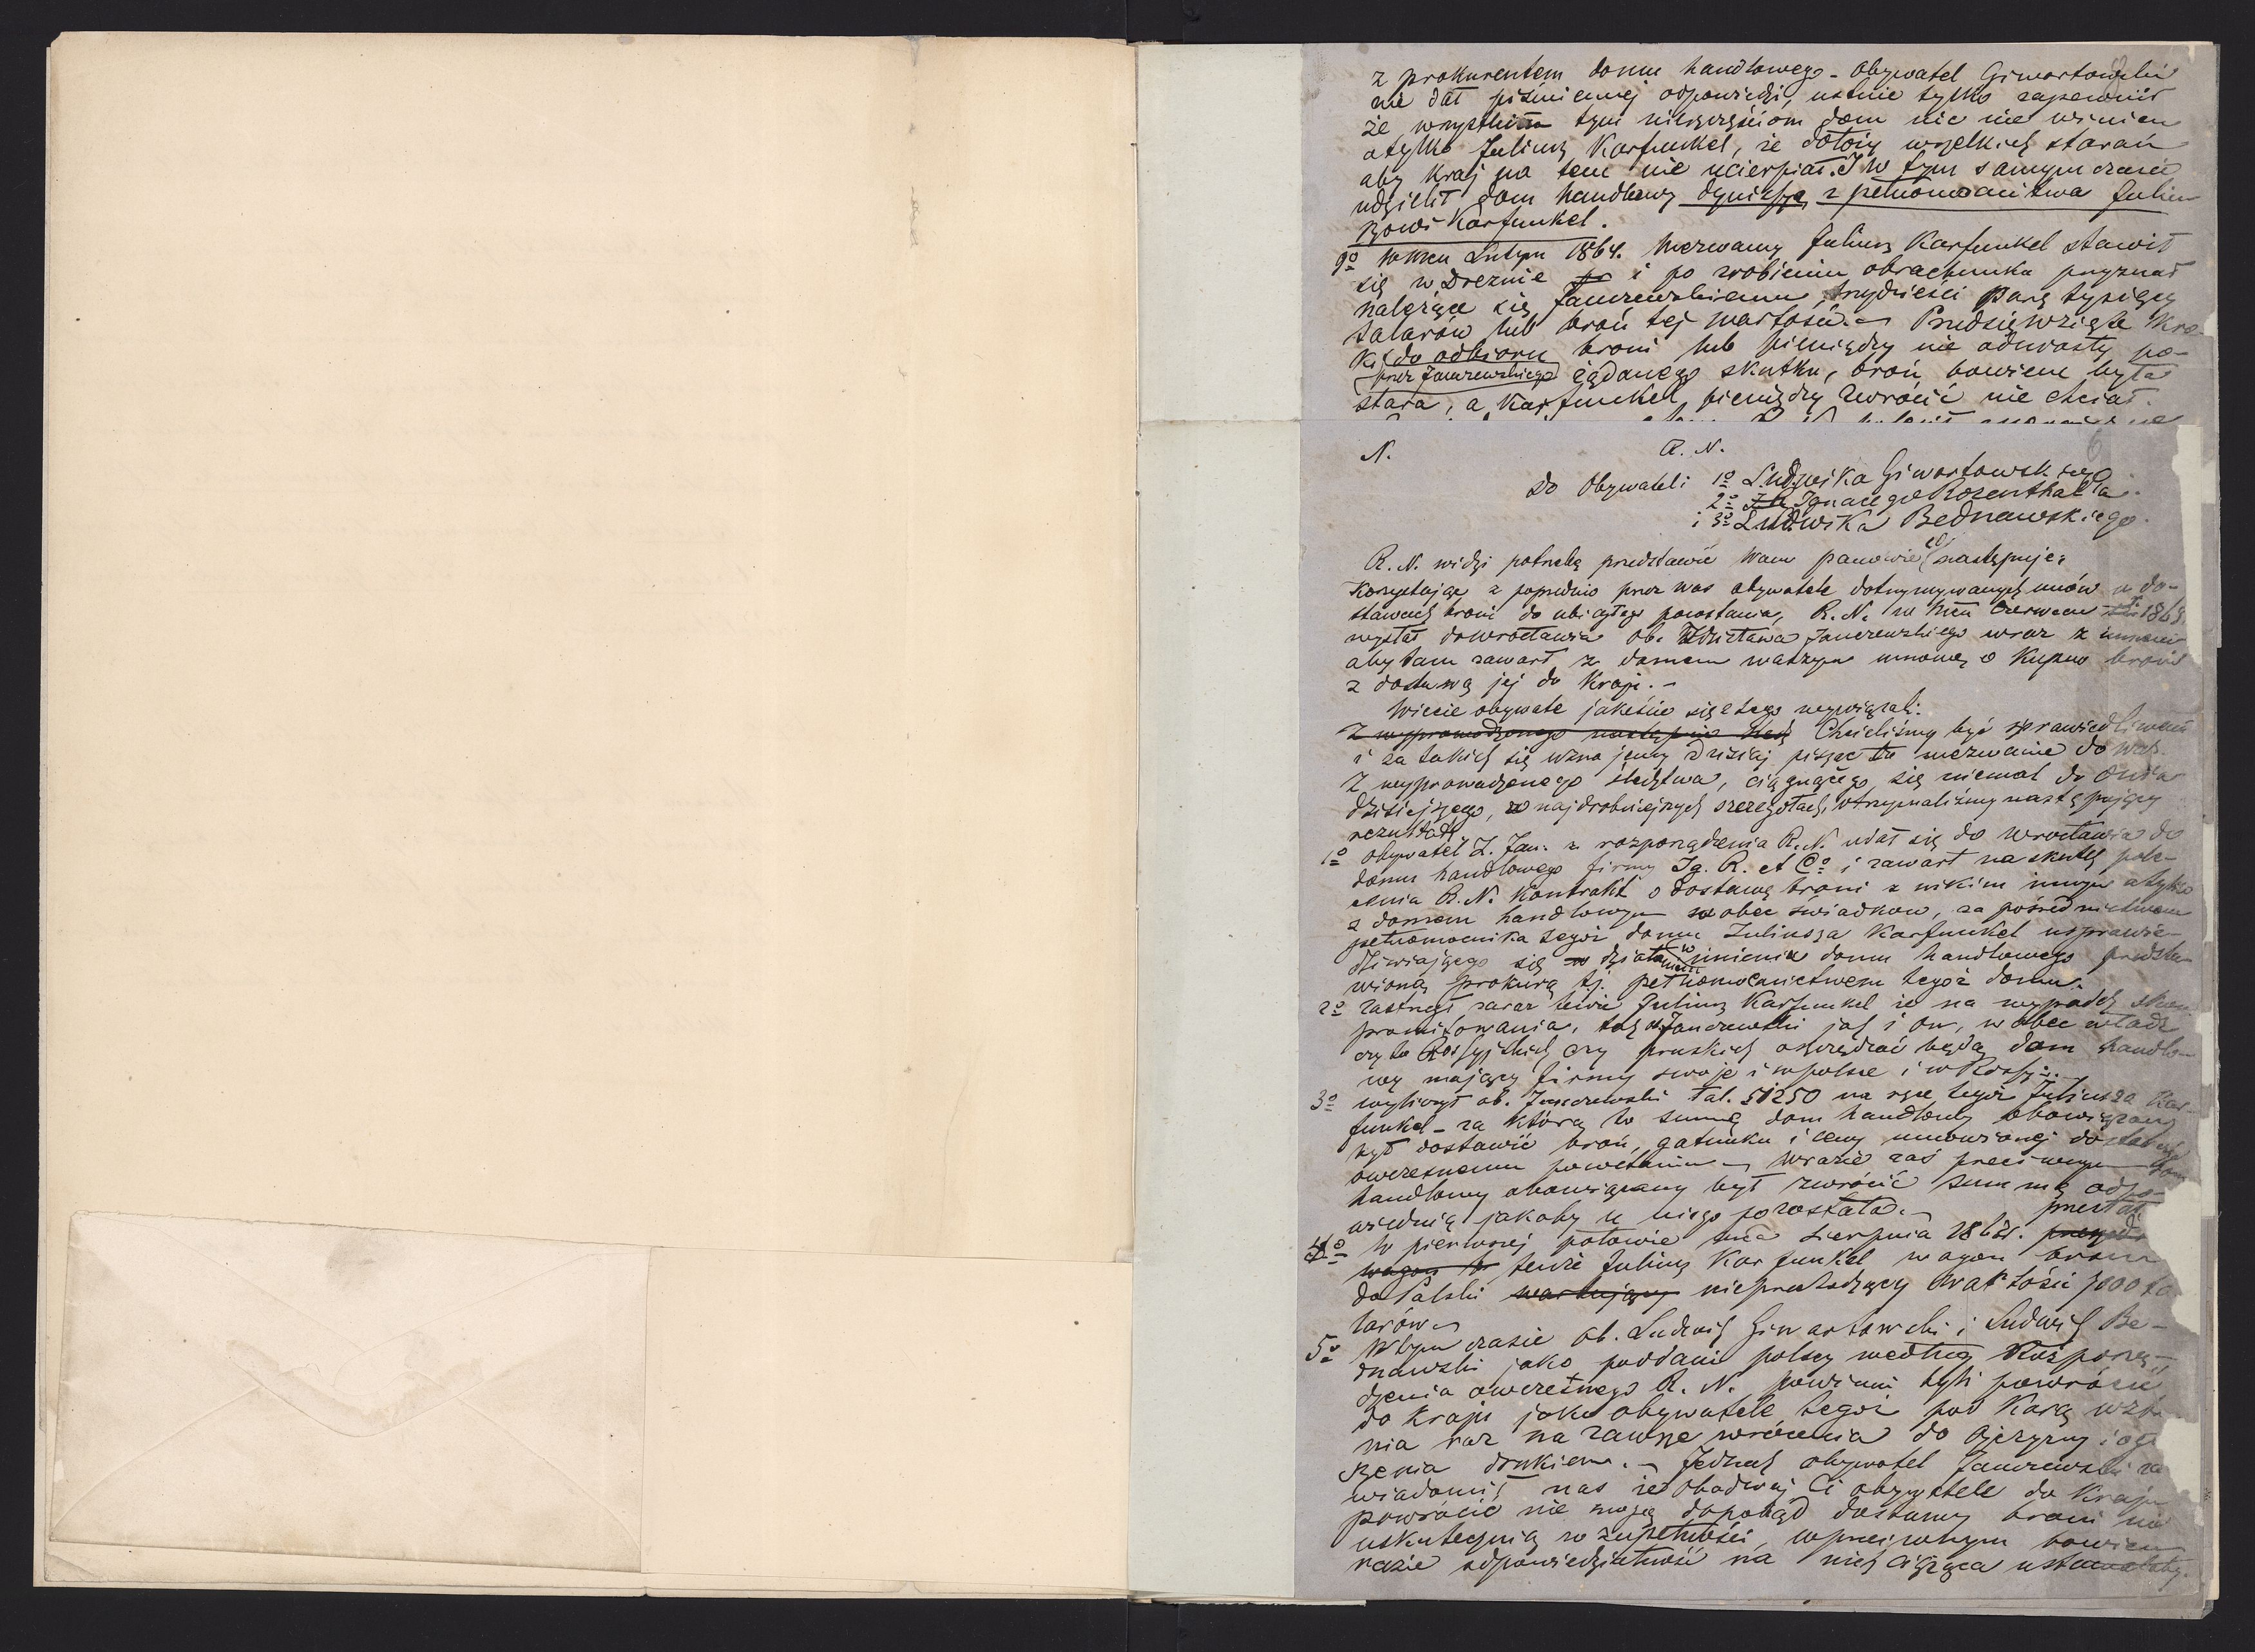 z prokurentem domu handlowego – Obywatel Giwartowski
nie dał piśmiennej odpowiedzi, ustnie tylko zapewnił
że wszystkim tym nieszczęściom dom nic nie winien
a tylko Juliusz Karfunkel, że dołoży wszelkich starań
aby kraj na tem nie ucierpiał. I w tym samym czasie
udzielił dom handlowy dymissyę z pełnomocnictwa Juliu-
szowi Karfunkel.
9o W mcu Lutym 1864. Wezwany Juliusz Karfunkel stawił
się w Dreznie i po zrobieniu obrachunku przyznał
należące się Janczewskiemu trzydzieści parę tysięcy
talarów lub broń tej wartości. – Przedsięwzięte kro-
ki do odbioru broni lub pieniędzy nie odniosły po-
przez Janczewskiego żądanego skutku, broń bowiem była
stara, a Karfunkel pieniędzy zwrócić nie chciał.
N. R. N. 6
Do Obywateli 1o Ludwika Giwartowskiego
2o Ignacego Rosenthala.
i 3o Ludwika Bednawskiego.
R. N. widzi potrzebę przedstawić Wam panowie co następuje:
Korzystając z poprzednio przez was obywatele dotrzymywanych umów o do-
stawach broni do ubiegłego powstania, R. N. w mcu Czerwcu 1863
wysłał do Wrocławia ob. Zdzisława Janczewskiego wraz z
aby tam zawarł z domem waszym umowę o kupno broni
z dostawą jej do Kraju. –
Wiecie obywatele jakeście się z tego wywiązali.
Z wyprowadzonego następnie Chcieliśmy być sprawiedliwemi
i za takich się uznajemy dzisiaj pisząc to wezwanie do was.
Z wyprowadzonego śledztwa, ciągnącego się niemal do dnia
dzisiejszego, w najdrobniejszych szczegółach, otrzymaliśmy następujący
rezultat
1o Obywatel Z. Jan. z rozporządzenia R. N. udał się do Wrocławia do
domu handlowego firmy Ig. R. et Co i zawarł na skutek pole-
cenia R. N. Kontrakt o dostawę broni z nikim innym a tylko
z domem handlowym wobec świadków, za pośrednictwem
pełnomocnika tegoż domu Juliusza Karfunkel usprawie-
dliwiającego się działaniem w imieniu domu handlowego przedsta-
wioną prokurą tj. pełnomocnictwem tegoż domu.
2o Zastrzegł zaraz tenże Juliusz Karfunkel że na wypadek skom-
promitowania, tak ob. Janczewski jak i on, wobec władz
czy to Rossyjskich czy pruskich oszczędzać będą dom handlo-
wy mający firmy swoje i w polsce i w Rossyi. –
3o wyliczył ob. Janczewski tal. 51250 na ręce tegoż Juliusza Kar-
funkel – za którą to summę dom handlowy obowiązany
był dostawić broń, gatunku i ceny umówionej
owczesnemu powstaniu – w razie zaś przeciwnym dom
handlowy obowiązany był zwrócić summę odpo-
wiednią jakaby u niego pozostała. – przesłał
4o W pierwszej połowie mca Sierpnia 1863r.
wagon tenże Juliusz Karfunkel wagon broni
do Polski wartujący nieprzechodzący wartości 7000 ta-
larów –
5o W tym czasie ob. Ludwik Giwartowski i Ludwik Be-
dnawski jako poddani polscy według Rozporzą-
dzenia owczesnego R. N. powinni byli powrócić
do kraju jako obywatele tegoż pod karą
nia raz na zawsze wrócenia do Ojczyzny i ogł
szenia drukiem. – Jednak obywatel Janczewski za
wiadomił nas że Obadwaj Ci obywatele do Kraju
powrócić nie mogą dopokąd dostawy broni nie
uskutecznią w zupełności, w przeciwnym bowiem
razie odpowiedzialność na nich ciążąca ustawałaby.